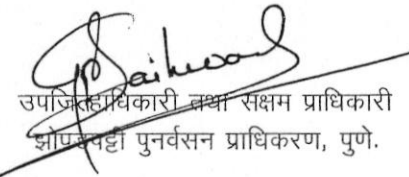 उपजिल्हाधिकारी तथा सक्षम प्राधिकारी
झोपडपट्टी पुनर्वसन प्राधिकरण, पुणे.